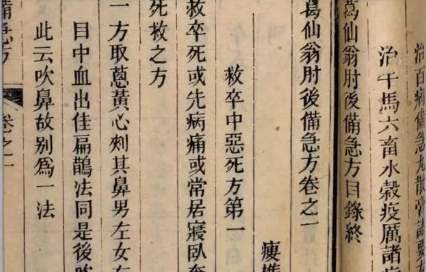 治百病備急丸散常諸要方
治牛馬六畜水穀疫厲諸病
葛仙翁肘後備急方目錄終
葛仙翁肘後備急方卷之一
救卒中惡死方第一
瘦樵
救卒死或先病痛或常居寢臥奄
死救之方
一方取葱黃心刺其鼻男左女右
目中血出佳扁鵲法同是後
此云吹鼻故別爲一法
備急方
卷之一